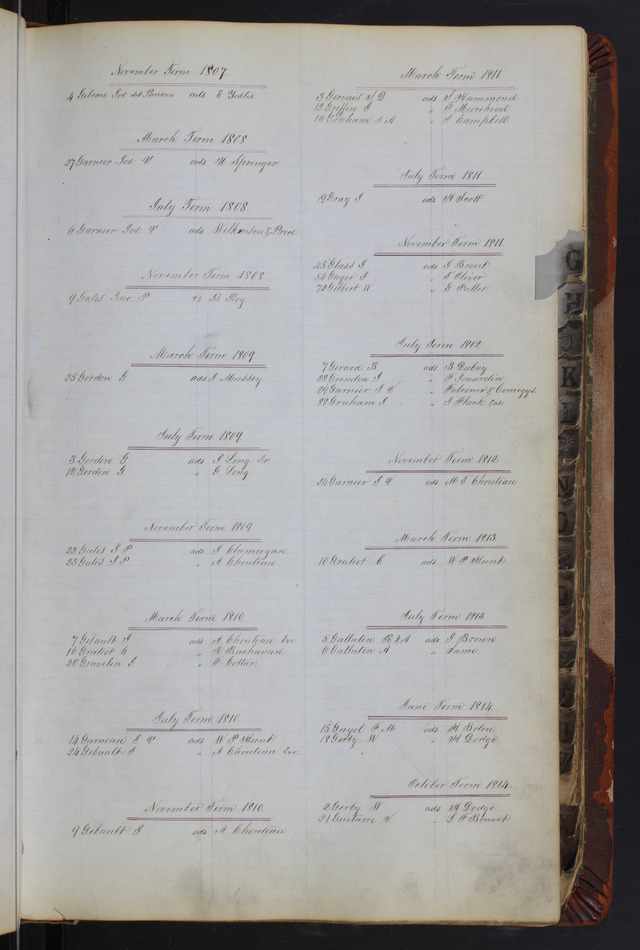 November Term 1807
4 Gibeau Jos. ads E Yostis
March Term 1808
27 Garnier Jos. V ads M Springer
July Term 1808
6 Garnier Jos. V ads Wilkinson & Price
November Term 1808
9 Gates Jno P vs B Roy
March Term 1809
28 Gordon G ads J Massey
July Term 1809
3 Gordon G ads J Long Sr
12 Gordon G " G Long
November Term 1809
22 Gates J P ads J Clamorgan
23 Gates J P " A Chouteau
March Term 1810
7 Gibault J ads A Chouteau Exr
16 Gratiot C " R Buchanan
20 Gravelin J " P Cottar
July Term 1810
14 Garneau E V ads W P Hunt
24 Gibault J " A Chouteau Exr
November Term 1810
9 Gibault J ads A Chouteau
March Term 1811
3 Gervais J B ads J Hammond
12 Griffin J " P Muirhead
14 Graham J A " J Campbell
July Term 1811
19 Gray J ads H Scott
November Term 1811
28 Glass J ads J Brent
34 Guger J " T Oliver
72 Gilbert W " G Keller
July Term 1812
7 Gerard B ads B Dubay
28 J " P
29 Garnier J V " Falconer & Comegys
98 Graham J " J Flack Exr
November Term 1812
24 Garnier J V ads M T Chouteau
March Term 1813
10 Gratiot C ads W P Hunt
July Term 1813
5 Gallatin R & A ads J Brown
6 Gallatin A " Same
June Term 1814
15 Guyol F M ads H Bolen
18 Gerby W " H Dodge
October Term 1814
2 Gerby W ads H Dodge
21 Guitard V " L F Bouvet
G
H
J
K
L
M
N
O